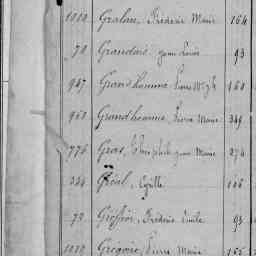 1010 Gralan, Frédéric Marie 164
70 Grandais, Jean Louis 93
967 Grandhomme, Pierre 160
960 Grandhomme, Pierre Marie 349
776 Gras, Jean Marie 274
344 Gréal, Cyrille 106
79 Frédéric Emile 93
1010 Grégoire, Pierre Marie 165